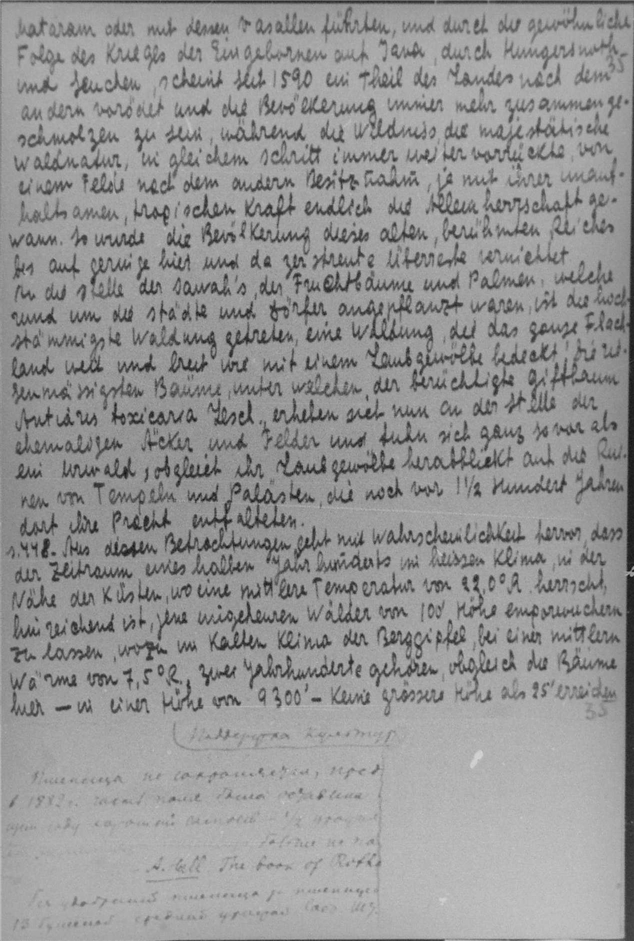 Mataram oder mit dessen Vasallen führten, und durch die gewöhnliche
Folge des Krieges der Eingebornen auf Java, durch Hungersnoth
35
und Seuchen, scheint seit 1590 ein Theil des Landes nach dem
andern verödet und die Bevölkerung immer mehr zusammenge-
schmolzen zu sein, während die Wildniss, die majestätische
Waldnatur, in gleichem Schritt immer weiter vorrückte, von
einem Felde nach dem andern Besitz nahm, ja mit ihrer unauf-
haltsamen, tropischen Kraft endlich die Alleinherrschaft ge-
wann. So wurde die Bevölkerung dieses alten, berühmten Reiches
bis auf geringe hier und da zerstreute Überreste vernichtet
An die Stelle der Sawah's, der Fruchtbäume und Palmen, welche
rund um die Städte und Dörfer angepflanzt waren, ist die hoch-
stämmigste Waldung getreten, eine Waldung, die das ganze Flach-
land weit und breit wie mit einem Laubgewölbe bedeckt; die rie-
senmässigsten Bäume, unter welchen der berüchtigte Giftbaum
Antiaris toxicaria Lesch., erheben sich nun an der Stelle der
ehemaligen Äcker und Felder und tuhn sich ganz so vor als
ein Urwald, obgleich ihr Laubgewölbe herabblickt auf die Rui-
nen von Tempeln und Palästen, die noch vor 1½ Hundert Jahren
dort ihre Pracht entfalteten.
s.448. Aus dessen Betrachtungen geht mit Wahrscheinlichkeit hervor, dass
der Zeitraum eines halben Jahrhunderts im heissen Klima, in der
Nähe der Küsten, wo eine mittlere Temperatur von 22,0°R. herrscht,
hinreichend ist, jene ungeheuren Wälder von 100' Höhe emporwuchern
zu lassen, wozu im Kalten Klima der Berggipfel, bei einer mittlern
Wärme von 7,5°R, zwei Jahrhunderte gehören, obgleich die Bäume
hier – in einer Höhe von 9300' – Keine grössere Höhe als 25' erreichen
35
культур
Пшеница не
в 1882 г. часть поля была
1/2
A. Bell The book of
Без удобрений пшеница
13 бушелей средний урожай